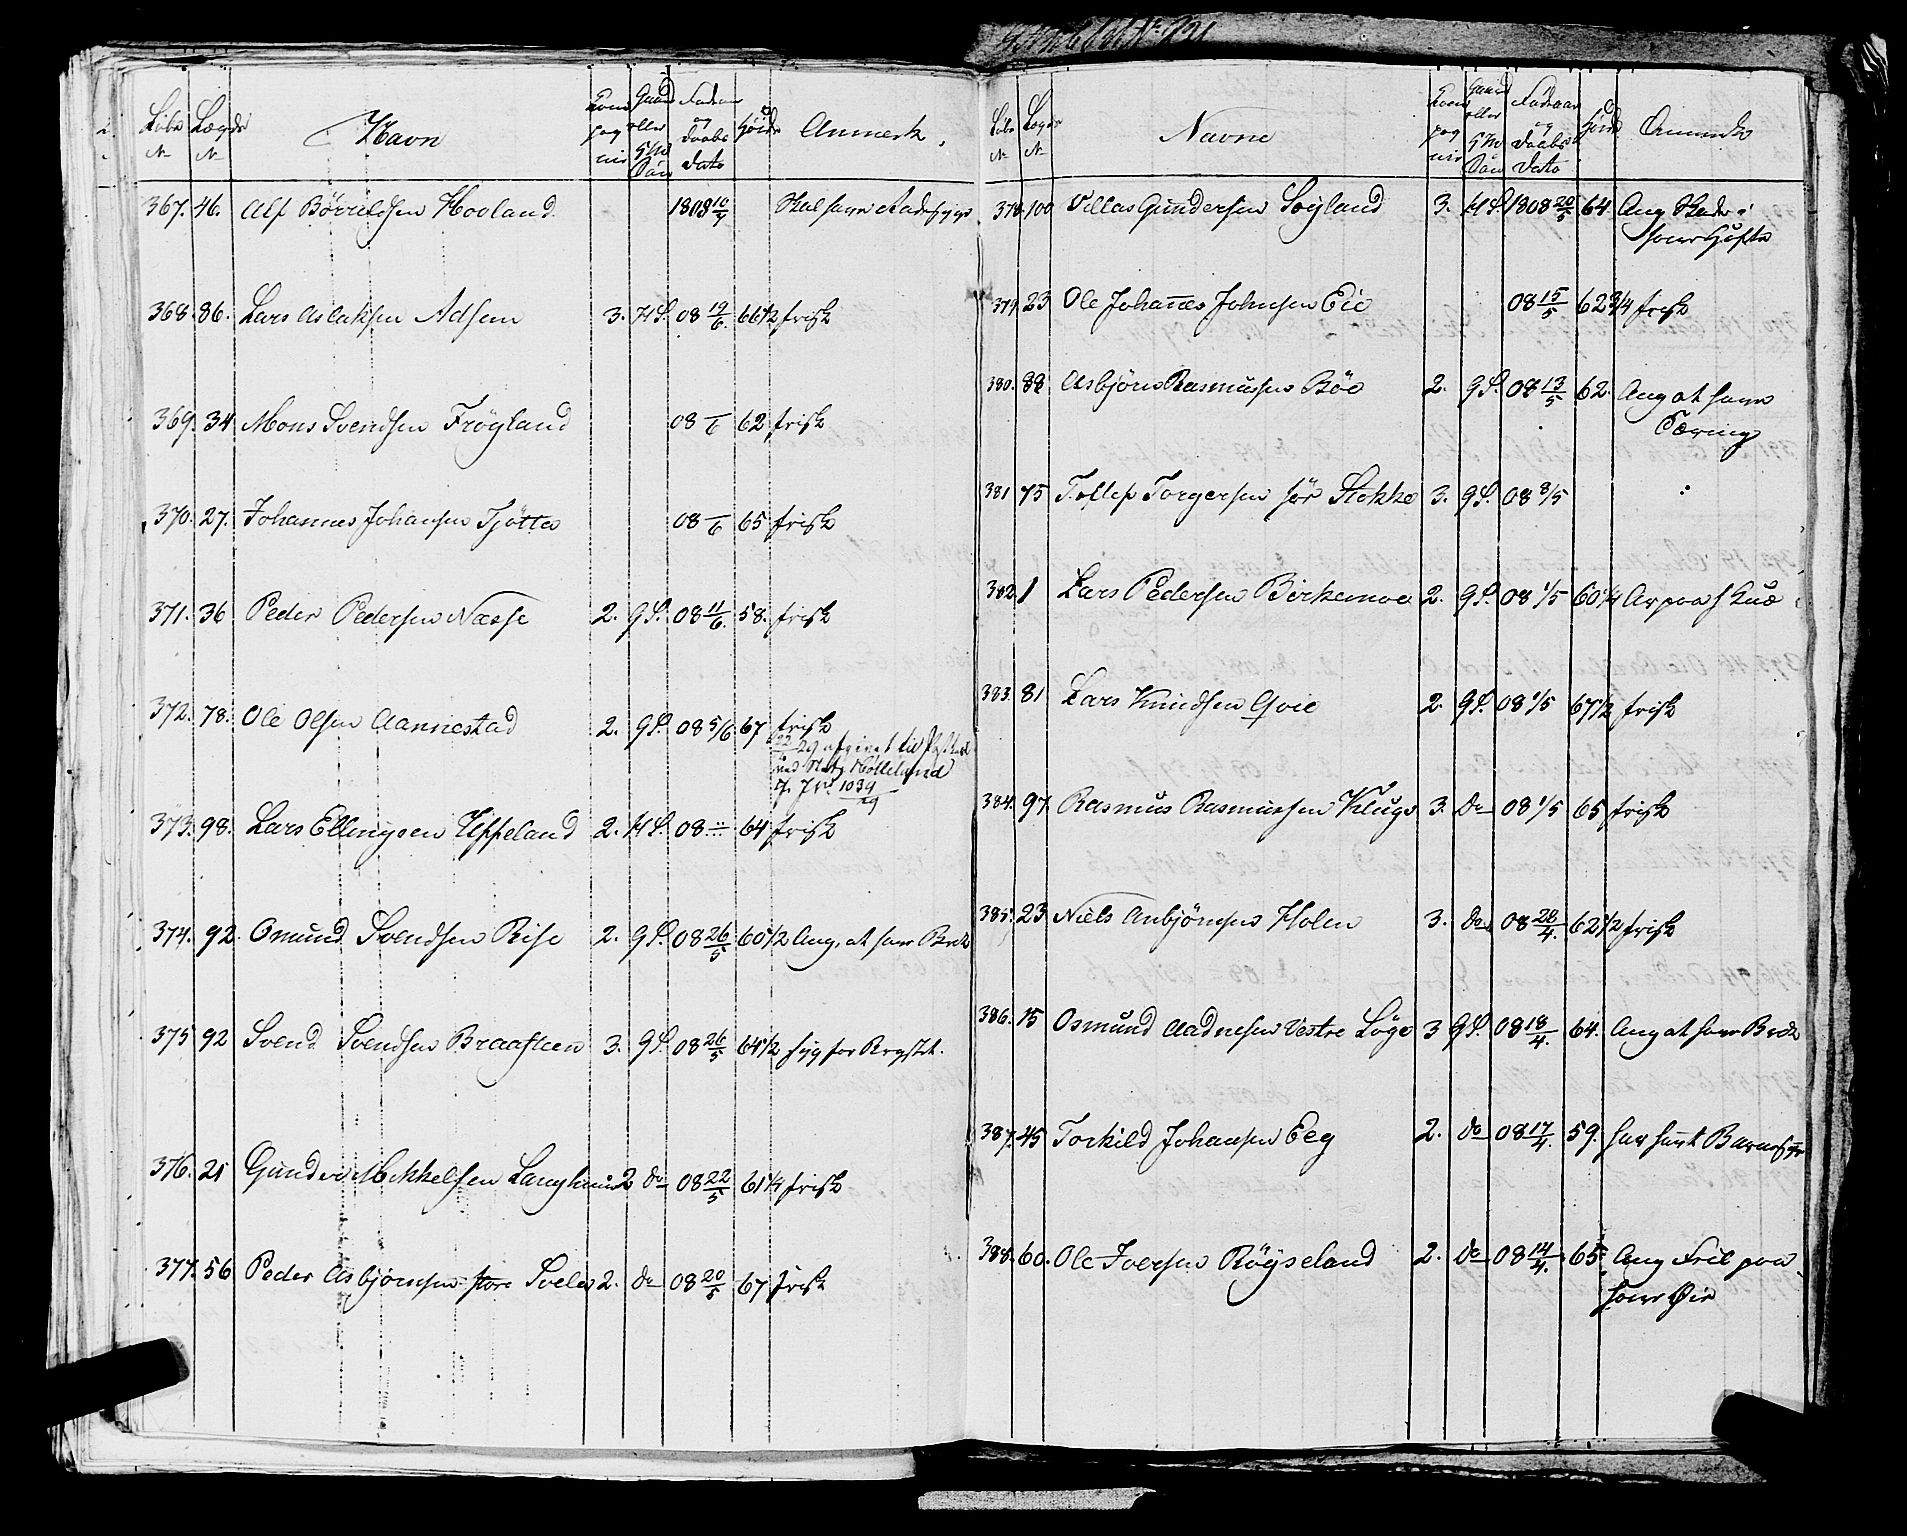 Løbe No Lægds No Navn Com pag nie Gaard eller H.M. Søn Fødeaar og Daabs Dato Høide Anmerk.
367. 46. Alf Börrildsen Hovland 1808 10/7 Skal have Radesyge
368. 86. Lars Aslaksen Adsem 3. H S. 08 19/6. 66 1/2 frisk
369. 34 Mons Svendsen Fröyland 08 –/6 62 frisk
370. 27. Johannes Johansen Tjötta 08 –/6 65 frisk
371. 36 Peder Pedersen Nasse 2. G S. 08 11/6. 58. frisk
372. 78. Ole Olsen Aannestad 2. G S. 08 5/6 67 frisk
373. 98. Lars Ellingsen Ueffeland 2. H S. 08 64 frisk
374. 92. Omund Svendsen Rise 2. G S. 08 26/5 60 1/2 Ang. at have Brok
375 92 Svend Svendsen Braasteen 3. G S. 08 26/5 64 1/2 syg for Brystet.
376. 21 Gunder Mikkelsen Langhuus 2 do 08 22/5 61 1/4 frisk
377. 56 Peder Asbjörnsen store Svela 2. do 08 20/5 67 frisk
Løbe No Lægds No Navne Com pag nie Gaard eller H.M. Søn Fødeaar og Daabs Dato Høide Anmerk
378. 100 Villas Gundersen Söyland 3. H S. 1808 20/5 64 Ang Skade i
have Hofte
379. 23 Ole Johanes Johnsen Eie 08 15/5 62 3/4 frisk
380. 88 Asbjörn Rasmussen Böe 2. G S. 08 13/5 62. Ang at have
Tæring
381 75 Tollef Torgersen sör Stokke 3. G S. 08 8/5
382. 1 Lars Pedersen Birkemoe 2. G S. 08 1/5 60 1/4 Ar paa Knæ
383. 81 Lars Knudsen Qvie 2. G S. 08 1/5 67 1/2 frisk
384. 97. Rasmus Rasmussen Kluge 3. do 08 1/5 65 frisk
385. 23 Niels Anbjörnsen Holen 3. do 08 28/4. 62 1/2 frisk
386. 15 Osmund Aadnesen Vestre Löge 3 G S. 08 18/4. 64. Ang at have Brok
387. 45 Torkild Johansen Eeg 2. do 08 17/4. 59. har havt
388. 60. Ole Iversen Röyseland 2. do 08 14/4. 65. Ang Feil paa
have Øie